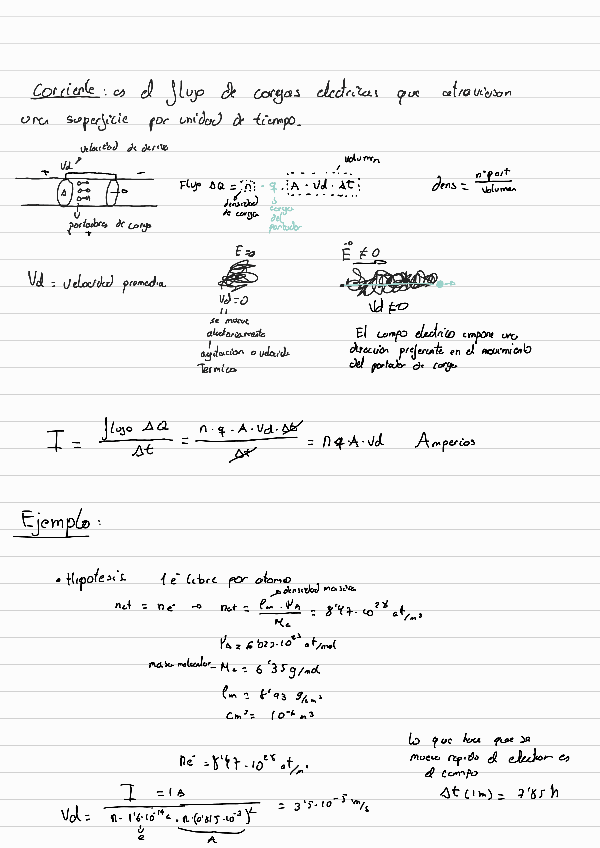 Corriente: es el flujo de cargas electricas que atraviesan
una superficie por unidad de tiempo.
velocidad de deriva
Vd
A
portadores de carga
+
Flujo ΔQ = n · q · A · Vd · Δt
volumen
densidad de carga
carga del portador
dens = nº part / volumen
Vd = velocidad promedia
E = 0
Vd = 0
se mueve
aleatoriamente
agitacion o velocidad
Termica
E ≠ 0
Vd ≠ 0
El campo electrico impone una
direccion preferente en el movimiento
del portador de carga
I = flujo ΔQ / Δt = n · q · A · Vd · Δt / Δt = n q A · Vd Amperios
Ejemplo:
• Hipotesis 1 e⁻ libre por atomo
densidad masica
nat = ne⁻ → nat = ρm · NA / Ma = 8'47 · 10²⁸ at/m³
NA = 6'022 · 10²³ at/mol
masa molecular → Ma = 6'35 g/mol
ρm = 8'93 g/cm³
cm³ = 10⁻⁶ m³
ne⁻ = 8'47 · 10²⁸ at/m³
Vd = I = 1A / n · 1'6 · 10⁻¹⁹ · π · (0'815 · 10⁻³)² = 3'5 · 10⁻⁵ m/s
e
A
lo que hace que se
mueva rapido el electron es
el campo
Δt (1m) = 7'85 h